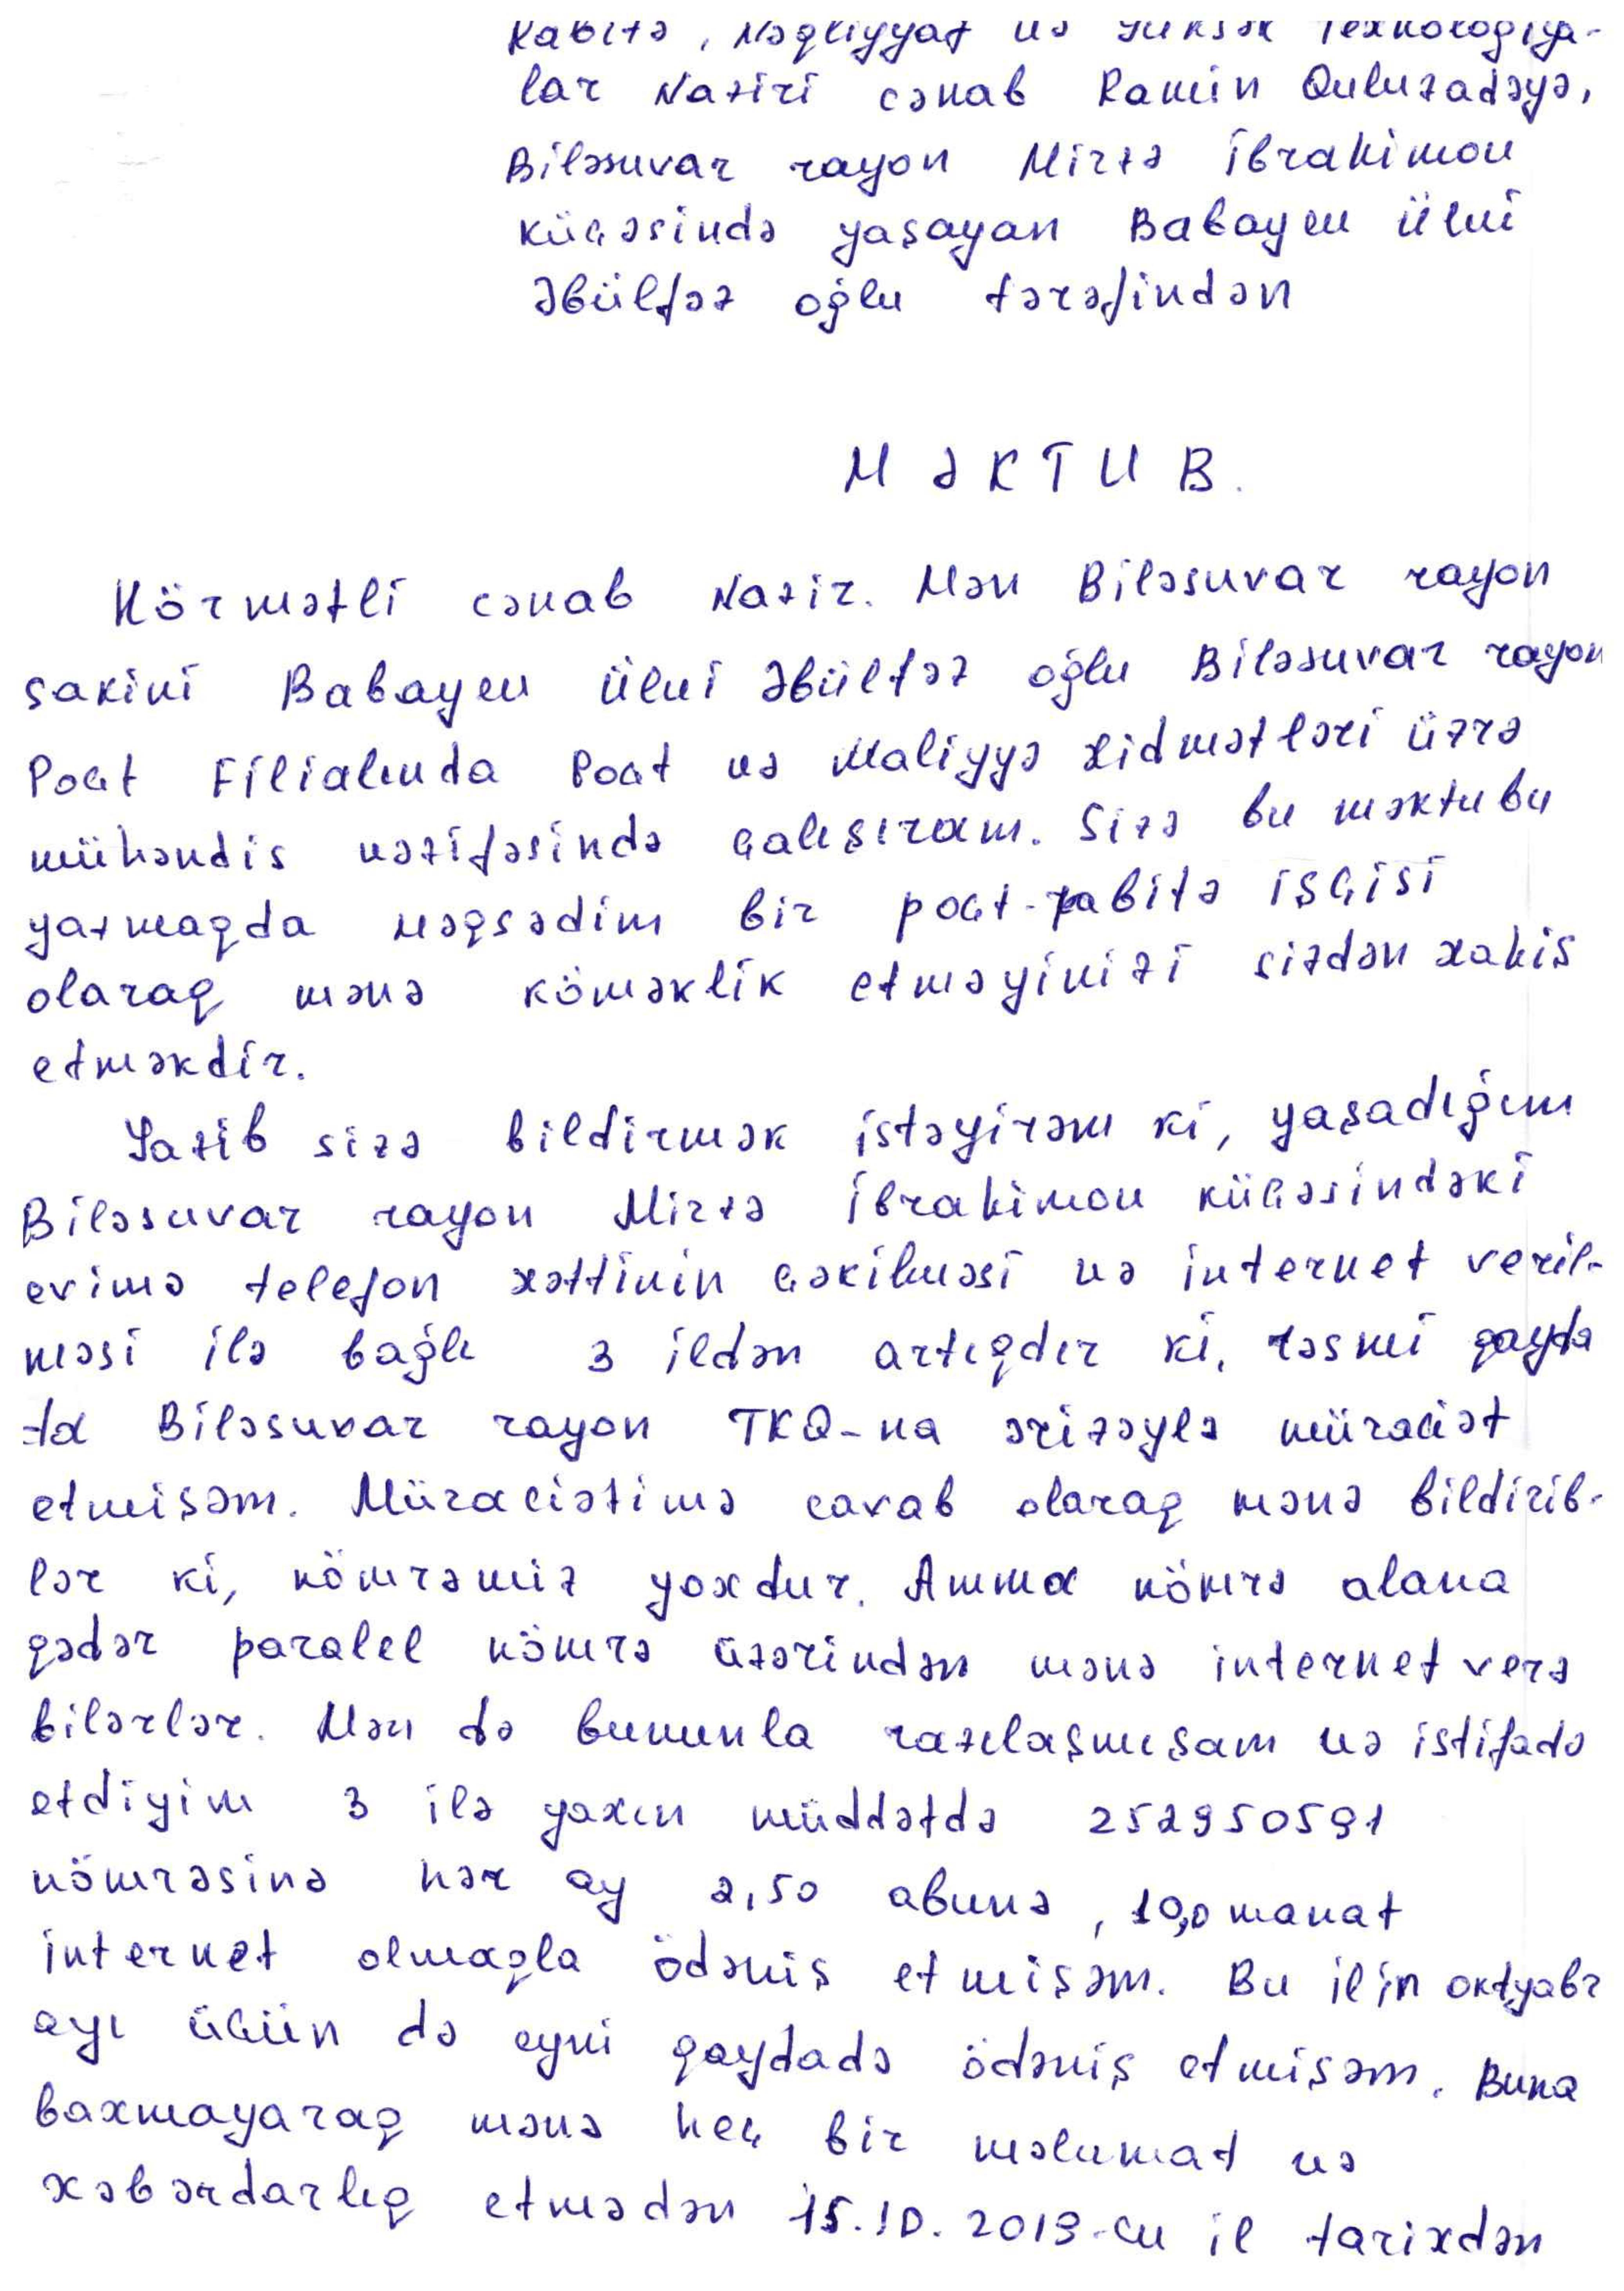 Rabitə, Nəqliyyat və Yüksək Texnologiya-
lar Naziri cənab Ramin Quluzadəyə,
Biləsuvar rayon Mirzə İbrahimov
küçəsində yaşayan Babayev Ülvi
Əbülfəz oğlu tərəfindən
MƏKTUB.
Hörmətli cənab Nazir. Mən Biləsuvar rayon
sakini Babayev Ülvi Əbülfəz oğlu Biləsuvar rayon
Poçt Filialında Poçt və Maliyyə Xidmətləri üzrə
mühəndis vəzifəsində çalışıram. Sizə bu məktubu
yazmaqda məqsədim bir poçt-rabitə işçisi
olaraq mənə köməklik etməyinizi sizdən xahiş
etməkdir.
Yazıb sizə bildirmək istəyirəm ki, yaşadığım
Biləsuvar rayon Mirzə İbrahimov küçəsindəki
evimə telefon xəttinin çəkilməsi və internet veril-
məsi ilə bağlı 3 ildən artıqdır ki, rəsmi qayda
-da Biləsuvar rayon TKQ-na ərizəylə müraciət
etmişəm. Müraciətimə cavab olaraq mənə bildirib-
lər ki, nömrəmiz yoxdur. Amma nömrə alana
qədər paralel nömrə üzərindən mənə internet verə
bilərlər. Mən də bununla razılaşmışam və istifadə
etdiyim 3 ilə yaxın müddətdə 252950591
nömrəsinə hər ay 2,50 abunə, 10,0 manat
internet olmaqla ödəniş etmişəm. Bu ilin oktyabr
ayı üçün də eyni qaydada ödəniş etmişəm. Buna
baxmayaraq mənə heç bir məlumat və
xəbərdarlıq etmədən 15.10.2019-cu il tarixdən